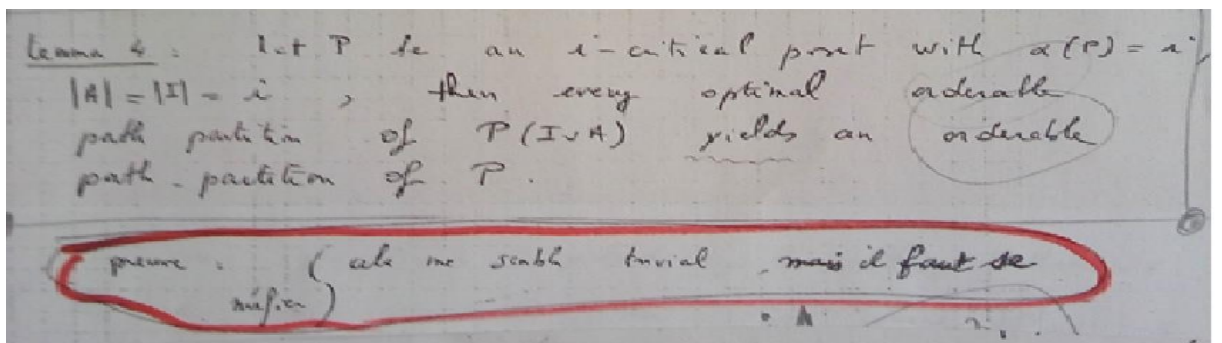 Lemma 4 : Let P be an i-critical poset with α(P) = i,
|A| = |I| = i , then every optimal orderable
path partition of P(I∪A) yields an orderable
path-partition of P.
preuve : ( cela me semble trivial , mais il faut se
méfier )